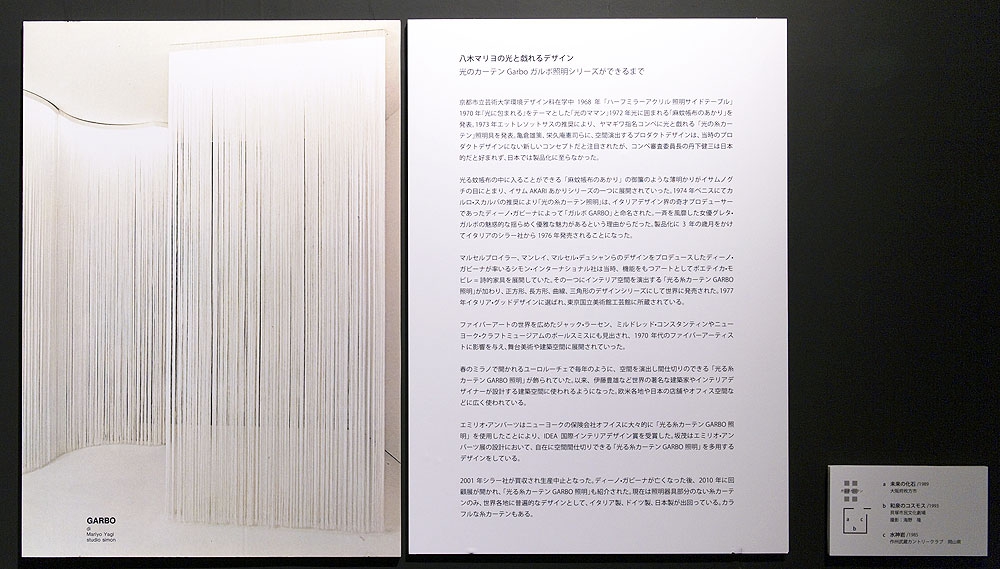 GARBO
di
Mariyo Yagi
studio simon
八木マリヨの光と戯れるデザイン
光のカーテン Garbo ガルボ照明シリーズができるまで
京都市立芸術大学環境デザイン科在学中 1968 年「ハーフミラーアクリル照明サイドテーブル」
1970 年「光に包まれる」をテーマとした「光のママン」1972 年光に囲まれる「麻蚊帳布のあかり」を
発表。1973 年エットレソットサスの推奨により、ヤマギワ指名コンペに光と戯れる「光の糸カー
テン」照明具を発表。亀倉雄策、栄久庵憲司らに、空間演出するプロダクトデザインは、当時のプロ
ダクトデザインにない新しいコンセプトだと注目されたが、コンペ審査委員長の丹下健三は日本
的だと好まれず、日本では製品化に至らなかった。
光る蚊帳布の中に入ることができる「麻蚊帳布のあかり」の御簾のような薄明かりがイサムノグ
チの目にとまり、イサム AKARI あかりシリーズの一つに展開されていった。1974 年ベニスにてカ
ルロ・スカルパの推奨により「光の糸カーテン照明」は、イタリアデザイン界の奇才プロデューサー
であったディーノ・ガビーナによって「ガルボ GARBO」と命名された。一斉を風靡した女優グレタ・
ガルボの魅惑的な揺らめく優雅な魅力があるという理由からだった。製品化に 3 年の歳月をかけ
てイタリアのシラー社から 1976 年発売されることになった。
マルセルブロイラー、マンレイ、マルセル・デュシャンらのデザインをプロデュースしたディーノ・
ガビーナが率いるシモン・インターナショナル社は当時、機能をもつアートとしてポエティカ・モ
ビレ＝詩的家具を展開していた。その一つにインテリア空間を演出する「光る糸カーテン GARBO
照明」が加わり、正方形、長方形、曲線、三角形のデザインシリーズにして世界に発売された。1977
年イタリア・グッドデザインに選ばれ、東京国立美術館工芸館に所蔵されている。
ファイバーアートの世界を広めたジャック・ラーセン、ミルドレッド・コンスタンティンやニュー
ヨーク・クラフトミュージアムのポールスミスにも見出され、1970 年代のファイバーアーティス
トに影響を与え、舞台美術や建築空間に展開されていった。
春のミラノで開かれるユーロルーチェで毎年のように、空間を演出し間仕切りのできる「光る糸
カーテン GARBO 照明」が飾られていた。以来、伊藤豊雄など世界の著名な建築家やインテリアデ
ザイナーが設計する建築空間に使われるようになった。欧米各地や日本の店舗やオフィス空間な
どに広く使われている。
エミリオ・アンバーツはニューヨークの保険会社オフイスに大々的に「光る糸カーテン GARBO 照
明」を使用したことにより、IDEA 国際インテリアデザイン賞を受賞した。坂茂はエミリオ・アン
バーツ展の設計において、自在に空間間仕切りできる「光る糸カーテン GARBO 照明」を多用する
デザインをしている。
2001 年シラー社が買収され生産中止となった。ディーノ・ガビーナが亡くなった後、2010 年に回
顧展が開かれ、「光る糸カーテン GARBO 照明」も紹介された。現在は照明器具部分のない糸カーテ
ンのみ、世界各地に普遍的なデザインとして、イタリア製、ドイツ製、日本製が出回っている。カラ
フルな糸カーテンもある。
a
c
b
a 未来の化石 /1989
大阪府枚方市
b 和泉のコスモス /1993
貝塚市民文化劇場
撮影：海野 隆
c 水神岩 /1985
作州武蔵カントリークラブ 岡山県